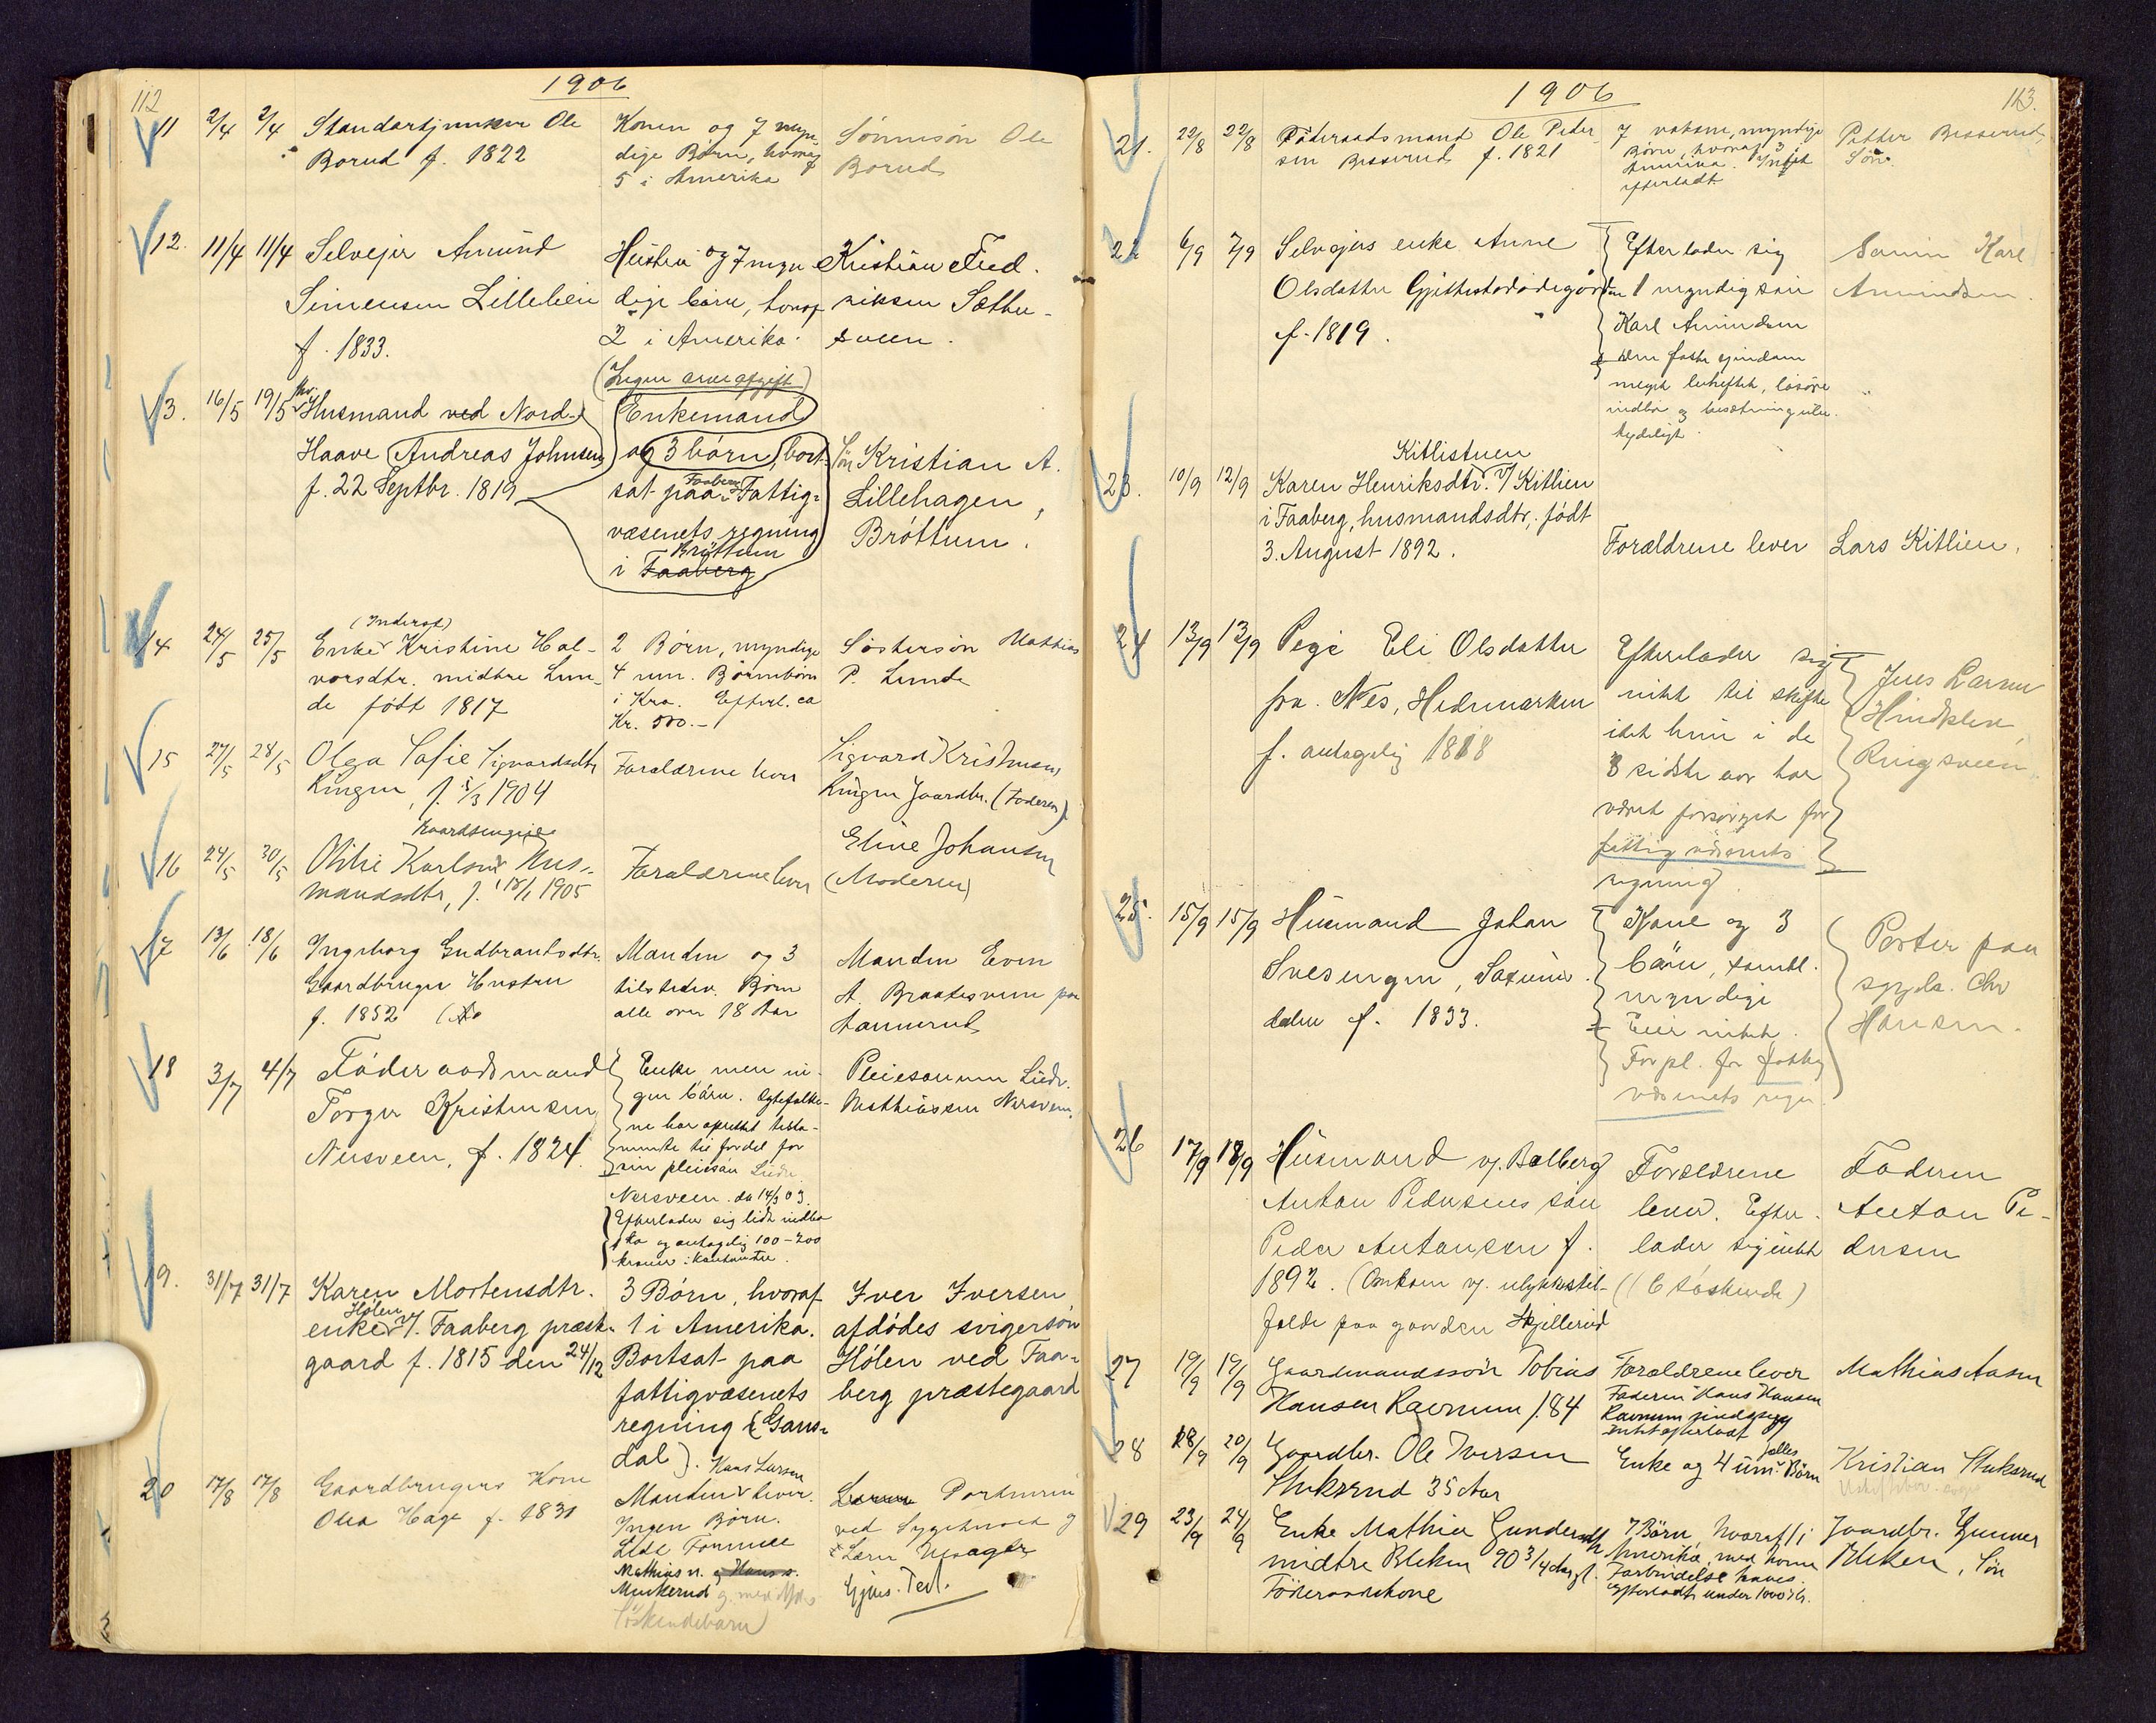 112
1906
11 2/4 2/4 Standartjunker Ole
Borud f. 1822
Konen og 7 myn-
dige Børn, hvoraf
5 i Amerika
Sønnesøn Ole
Borud
12. 11/4 11/4 Selvejer Amund
Simensen Lillelien
f. 1833.
Hustru og 7 myn
dige børn, hvoraf
2 i Amerika.
(Ingen arveafgift)
Kristian Fred.
riksen Sæther-
sveen.
13. 16/5 19/5 Husmand ved Nord-
Haave Andreas Johnsen
f. 22 Septbr. 1819
Enkemand
og 3 børn, bort-
sat paa Faaberg Fattig-
væsenets regning
i Faaberg
Brøttum
Søn Kristian A.
Lillehagen,
Brøttum.
14 24/5 25/5 (Inderst)
Enke Kristine Hal-
vorsdtr. midtre Lun-
de født 1817
2 Børn, myndige
4 um. Børnebørn
i Kra. Efterl. ca
Kr. 500.-
Søstersøn Mathias
P. Lunde
15 27/5 28/5 Olga Sofie Sigvardsdtr
Ringen, f. 5/3 1904
Forældrene lever
Sigvard Kristensen
Ringen Gaardbr. (Faderen)
16 24/5 30/5 Othie Karlsen Hus-
mandsdtr, f. 18/1 1905
Forældrene lever
Eline Johansen
(Moderen)
17 13/6 18/6 Ingeborg Gudbrandsdtr.
Gaardbruger Hustru
f. 1852
Manden og 3
tilstedev. Børn
alle over 18 Aar
Manden Even
A. Braatesveen paa
18 3/7 4/7 Föderaadsmand
Torger Kristensen
Nersveen, f. 1824
Enke men in-
gen børn. Egtefolke-
ne har oprettet testa-
mente til fordel for
sin pleiesøn Ludv.
Nersveen da 14/3 03.
Efterlader sig lidt indbo
og antagelig 100-200
kroner i kontanter.
Pleiesønnen Ludv.
Mathiassen Nersveen.
19. 31/7 31/7 Karen Mortensdtr.
enke Hølen v/. Faaberg præste-
gaard f. 1815 den 24/12
3 Børn, hvoraf
1 i Amerika.
Bortsat paa
fattigvæsenets
regning (Gaus-
dal).
Iver Iversen
afdødes svigersøn
Hølen ved Faa-
berg præstegaard
20 17/8 17/8 Gaardbrugers Kone
Olea Hage f. 1831
Hans Larsen
Manden lever.
Ingen Børn.
Mathias n. og Hans n.
Søskendebarn
Portneren
ved Sygehuset og
Ejus. Test.
1906
113.
21. 22/8 22/8 Föderaadsmand Ole Peder
sen Besserud f. 1821
7 voksne, myndige
Børn, hvoraf 3 i
Amerika. Intet
efterladt.
Petter Besserud,
Søn.
22 6/9 7/9 Selvejers enke Anne
Olsdatter Gjæthestadødegården
f. 1819.
Efterlader sig
1 myndig søn
Karl Amundsen
Den faste eiendom
meget beheftet, løsøre
indbo og besætning ube-
tydeligt.
Sønnen Karl
Amundsen.
23. 10/9 12/9 Kitlistuen
Karen Henriksdtr. v/ Kitlien
i Faaberg, husmandsdtr., født
3. August 1892.
Forældrene lever
Lars Kitlien.
24 13/9 13/9 Pige Eli Olsdatter
fra Nes, Hedemarken
f. antagelig 1818
Efterlader sig
intet til skifte
idet hun i de
8 sidste aar har
været forsørget for
fattigvæsenets
regning.
Jens Larsen
Hindklev,
Ringsveen.
25. 15/9 15/9 Husmand Johan
Svesengen, Saxum
dalen f. 1833.
Kone og 3
børn, samtl.
myndige
Eier intet.
Forpl. for fattig
væsenets regn.
Porter paa
sygeh. Chr
Hansen.
26 17/9 18/9 Husmand v/. Balberg
Anton Pedersens søn
Peder Antonsen f.
1892. (Omkom v/. ulykkestil-
fælde paa gaarden Skjellerud
Forældrene
lever. Efter-
lader sig intet
(6 søskende)
Faderen
Anton Pe-
dersen
27 19/9 19/9 Gaardmandssøn Tobias
Hansen Ravnum f. 84
Forældrene lever
Faderen Hans Hansen
Ravnum
intet efterladt
Mathias Aasen
28 18/9 20/9 Gaardbr. Ole Iversen
Stukerud 35 Aar
Enke og 4 um. fælles Børn
Kristian Stukerud
29 23/9 24/9 Enke Mathia Gundersdtr
midtre Bleken 90 3/4 Aar gl.
Föderaadskone
7 Børn, hvoraf 1 i
Amerika, med hvem
Forbindelse haves.
Efterladt under 1000 Kr.
Gaardbr. Gunner
Bleken, Søn